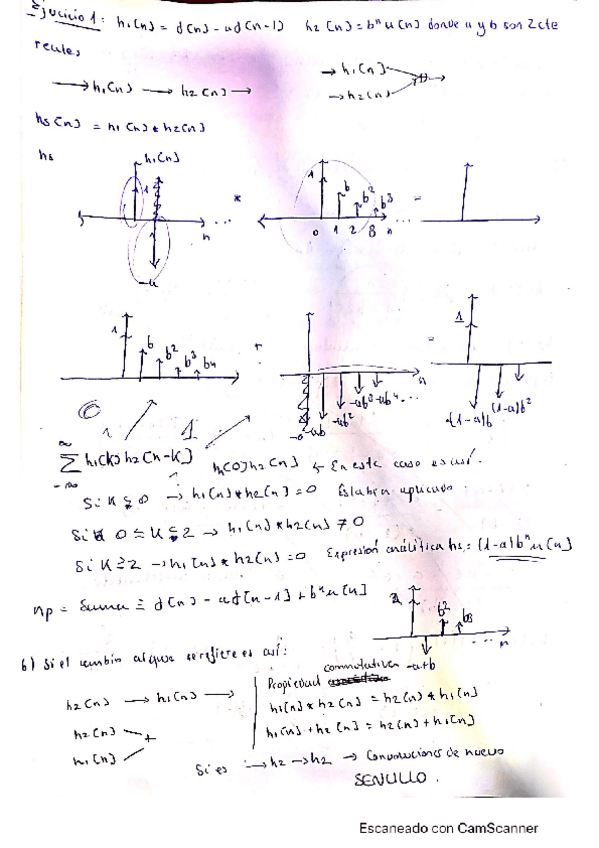 Ejercicio 1: h1[n] = d[n] - ad[n-1]   h2[n] = b^n u[n] donde a y b son 2 cte
reales
→ h1[n] → h2[n] →
→ h1[n]
→ h2[n]
hs[n] = h1[n] * h2[n]
hs
h1[n]
1
n
...
-a
*
1
b
b^2
b^3
0 1 2 n
...
=
1
b
b^2
b^3
b4
+
-ab
-ab^2
...
n
=
1
(1-a)b
(1-a)b^2
∞
Σ h1[k] h2[n-k]
-∞
h[0] h2[n] ← En este caso es así.
→ h1[n] * h2[n] = 0
→ h1[n] * h2[n] ≠ 0
Si K ≥ 2 → h1[n] * h2[n] = 0   Expresión analítica hs = (1-a)b^n u[n]
hp = Suma = d[n] - ad[n-1] + b^n u[n]
2
b^2
b3
n
-a+b
b) Si el cambio al que se refiere es así:
Propiedad conmutativa
h2[n] → h1[n] →
h1[n] * h2[n] = h2[n] * h1[n]
h2[n]
+
h1[n]
h1[n] + h2[n] = h2[n] + h1[n]
Si es → h2 → h2 → Convoluciones de nuevo
SENCILLO.
Escaneado con CamScanner